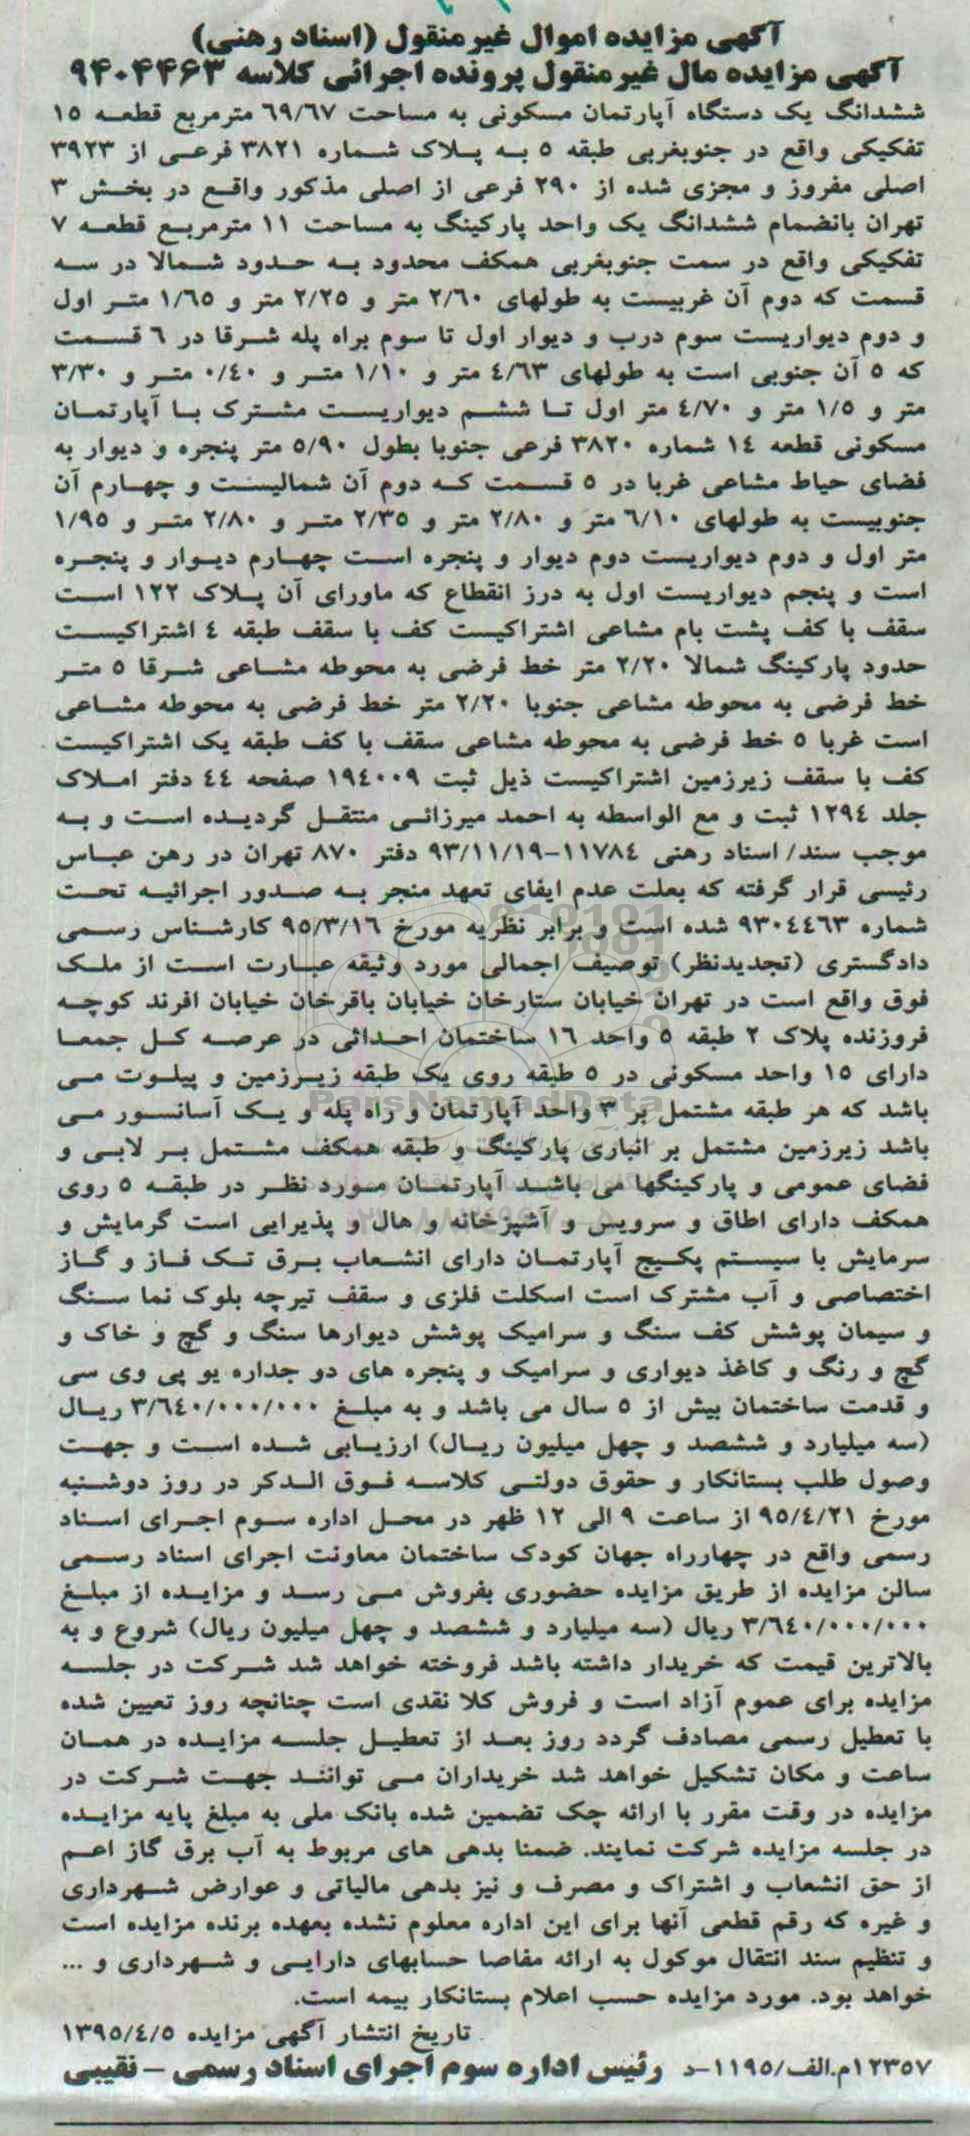 آگهی مزایده اموال غیرمنقول (اسناد رهنی)
آگهی مزایده مال غیرمنقول پرونده اجرائی کلاسه ۹۴۰۴۴۶۳
ششدانگ یک دستگاه آپارتمان مسکونی به مساحت ۶۹/۶۷ مترمربع قطعه ۱۵
تفکیکی واقع در جنوبغربی طبقه ۵ به پلاک شماره ۳۸۲۱ فرعی از ۳۹۲۳
اصلی مفروز و مجزی شده از ۲۹۰ فرعی از اصلی مذکور واقع در بخش ۳
تهران بانضمام ششدانگ یک واحد پارکینگ به مساحت ۱۱ مترمربع قطعه ۷
تفکیکی واقع در سمت جنوبغربی همکف محدود به حدود شمالا در سه
قسمت که دوم آن غربیست به طولهای ۲/۶۰ متر و ۲/۲۵ متر و ۱/۶۵ متر اول
و دوم دیواریست سوم درب و دیوار اول تا سوم براه پله شرقا در ۶ قسمت
که ۵ آن جنوبی است به طولهای ۴/۶۳ متر و ۱/۱۰ متر و ۰/۴۰ متر و ۳/۳۰
متر و ۱/۵ متر و ۴/۷۰ متر اول تا ششم دیواریست مشترک با آپارتمان
مسکونی قطعه ۱۴ شماره ۳۸۲۰ فرعی جنوبا بطول ۵/۹۰ متر پنجره و دیوار به
فضای حیاط مشاعی غربا در ۵ قسمت که دوم آن شمالیست و چهارم آن
جنوبیست به طولهای ۶/۱۰ متر و ۲/۸۰ متر و ۲/۳۵ متر و ۲/۸۰ متر و ۱/۹۵
متر اول و دوم دیواریست دوم دیوار و پنجره است چهارم دیوار و پنجره
است و پنجم دیواریست اول به درز انقطاع که ماورای آن پلاک ۱۲۲ است
سقف با کف پشت بام مشاعی اشتراکیست کف با سقف طبقه ۴ اشتراکیست
حدود پارکینگ شمالا ۲/۲۰ متر خط فرضی به محوطه مشاعی شرقا ۵ متر
خط فرضی به محوطه مشاعی جنوبا ۲/۲۰ متر خط فرضی به محوطه مشاعی
است غربا ۵ خط فرضی به محوطه مشاعی سقف با کف طبقه یک اشتراکیست
کف با سقف زیرزمین اشتراکیست ذیل ثبت ۱۹۴۰۰۹ صفحه ۴۴ دفتر املاک
جلد ۱۲۹۴ ثبت و مع الواسطه به احمد میرزائی منتقل گردیده است و به
موجب سند/ اسناد رهنی ۱۱۷۸۴-۹۳/۱۱/۱۹ دفتر ۸۷۰ تهران در رهن عباس
رئیسی قرار گرفته که بعلت عدم ایفای تعهد منجر به صدور اجرائیه تحت
شماره ۹۳۰۴۴۶۳ شده است و برابر نظریه مورخ ۹۵/۳/۱۶ کارشناس رسمی
دادگستری (تجدیدنظر) توصیف اجمالی مورد وثیقه عبارت است از ملک
فوق واقع است در تهران خیابان ستارخان خیابان باقرخان خیابان افرند کوچه
فروزنده پلاک ۲ طبقه ۵ واحد ۱۶ ساختمان احداثی در عرصه کل جمعا
دارای ۱۵ واحد مسکونی در ۵ طبقه روی یک طبقه زیرزمین و پیلوت می
باشد که هر طبقه مشتمل بر ۳ واحد آپارتمان و راه پله و یک آسانسور می
باشد زیرزمین مشتمل بر انباری پارکینگ و طبقه همکف مشتمل بر لابی و
فضای عمومی و پارکینگها می باشد آپارتمان مورد نظر در طبقه ۵ روی
همکف دارای اطاق و سرویس و آشپزخانه و هال و پذیرایی است گرمایش و
سرمایش با سیستم پکیج آپارتمان دارای انشعاب برق تک فاز و گاز
اختصاصی و آب مشترک است اسکلت فلزی و سقف تیرچه بلوک نما سنگ
و سیمان پوشش کف سنگ و سرامیک پوشش دیوارها سنگ و گچ و خاک و
گچ و رنگ و کاغذ دیواری و سرامیک و پنجره های دو جداره یو پی وی سی
و قدمت ساختمان بیش از ۵ سال می باشد و به مبلغ ۳/۶۴۰/۰۰۰/۰۰۰ ریال
(سه میلیارد و ششصد و چهل میلیون ریال) ارزیابی شده است و جهت
وصول طلب بستانکار و حقوق دولتی کلاسه فوق الدکر در روز دوشنبه
مورخ ۹۵/۴/۲۱ از ساعت ۹ الی ۱۲ ظهر در محل اداره سوم اجرای اسناد
رسمی واقع در چهارراه جهان کودک ساختمان معاونت اجرای اسناد رسمی
سالن مزایده از طریق مزایده حضوری بفروش می رسد و مزایده از مبلغ
۳/۶۴۰/۰۰۰/۰۰۰ ریال (سه میلیارد و ششصد و چهل میلیون ریال) شروع و به
بالاترین قیمت که خریدار داشته باشد فروخته خواهد شد شرکت در جلسه
مزایده برای عموم آزاد است و فروش کلا نقدی است چنانچه روز تعیین شده
با تعطیل رسمی مصادف گردد روز بعد از تعطیل جلسه مزایده در همان
ساعت و مکان تشکیل خواهد شد خریداران می توانند جهت شرکت در
مزایده در وقت مقرر با ارائه چک تضمین شده بانک ملی به مبلغ پایه مزایده
در جلسه مزایده شرکت نمایند. ضمنا بدهی های مربوط به آب برق گاز اعم
از حق انشعاب و اشتراک و مصرف و نیز بدهی مالیاتی و عوارض شهرداری
و غیره که رقم قطعی آنها برای این اداره معلوم نشده بعهده برنده مزایده است
و تنظیم سند انتقال موکول به ارائه مفاصا حسابهای دارایی و شهرداری و ...
خواهد بود. مورد مزایده حسب اعلام بستانکار بیمه است.
تاریخ انتشار آگهی مزایده ۱۳۹۵/۴/۵
۱۲۳۵۷م.الف/۱۱۹۵-د رئیس اداره سوم اجرای اسناد رسمی – نقیبی
ParsNamadData